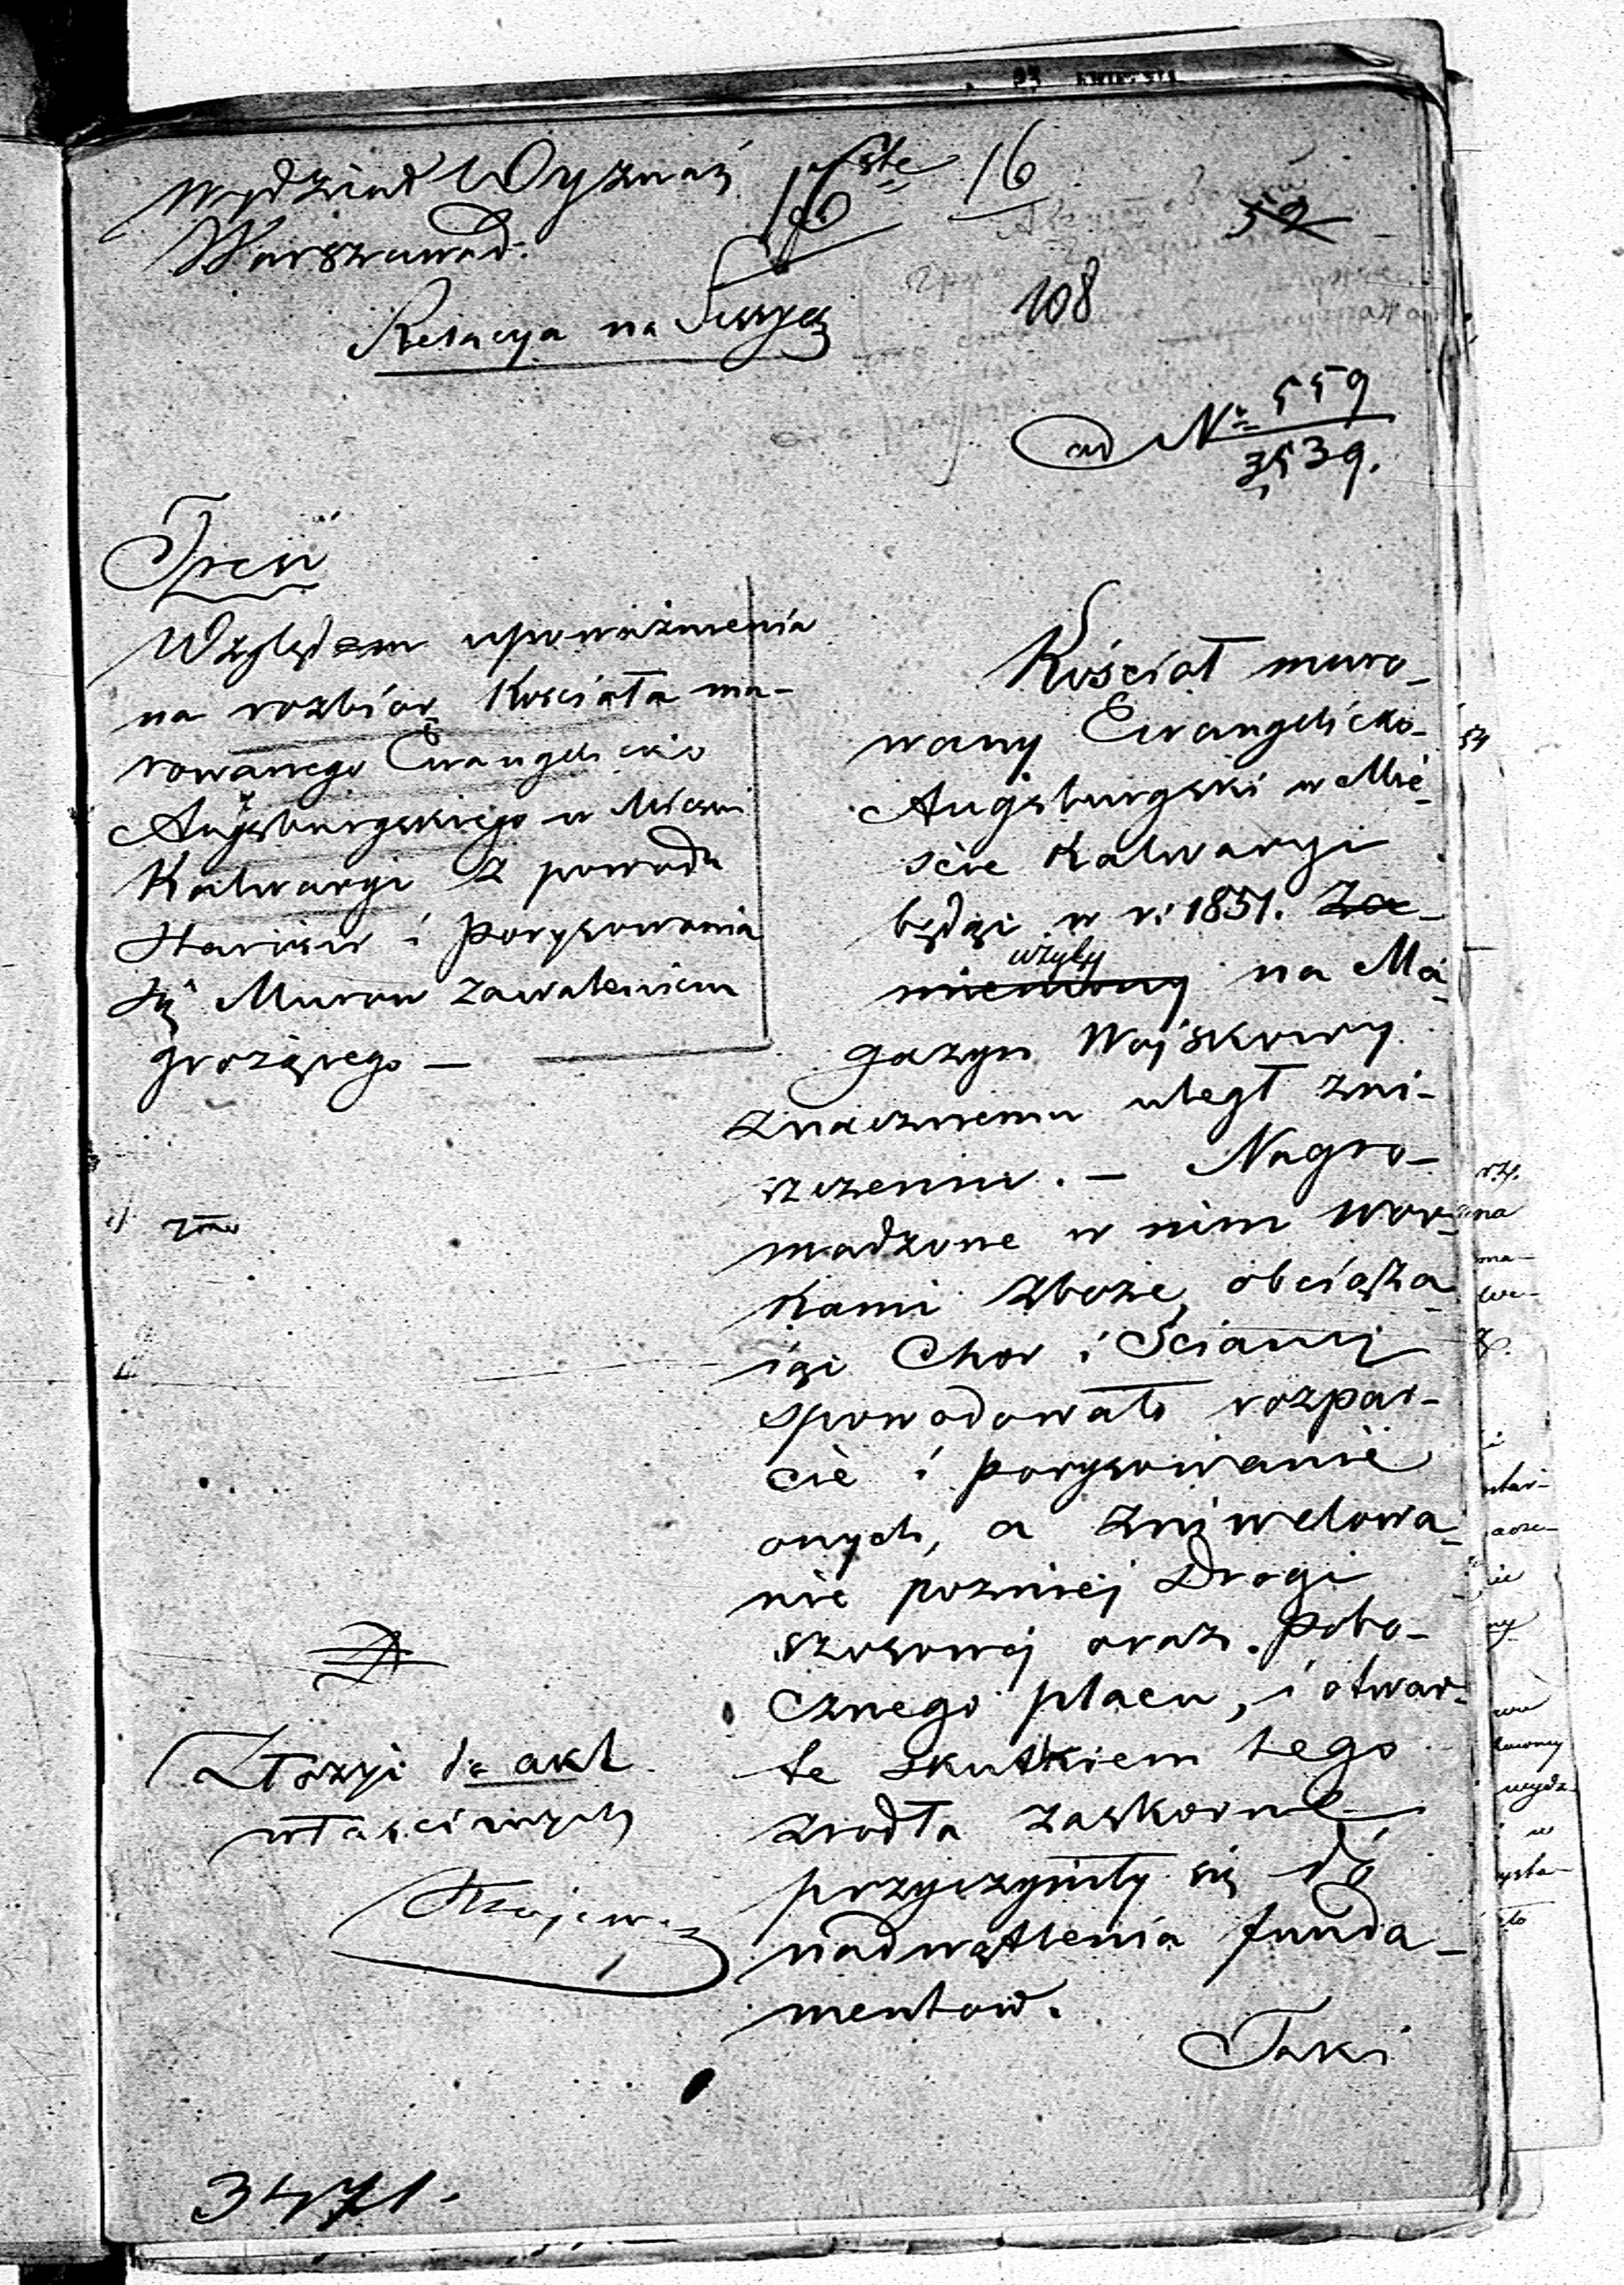 Wydział Wyznań
16
Warszawa d.
59
108
Relacya na Sessyą
ad № 559
3539.
Treść
Względem upoważnienia
na rozbiór Kościoła mu-
rowanego Ewangelicko
Augsburgskiego w Mieści
Kalwaryi z powodu
starości i porysowania
się Murow zawaleniem
grożącego —
Kościoł muro-
wany Ewangelicko-
Augsburgski w Mie-
ście Kalwaryi
będąc w r: 1851. za-
użyty
mieniony na Ma-
gazyn Wojskowy.
znacznemu uległ zni-
szczeniu. — Nagro-
madzone w nim wor-
kami zboże, obciąża-
iąc Chor i Sciany
spowodowało rozpar-
cie i porysowanie
onych, a zniwelowa-
nie pozniej Drogi
szosowej oraz pobo-
cznego placu, i otwar-
te skutkiem tego
zrodła zaskorne
przyczyniły się do
nadwątlenia funda-
mentow.
Taki
2do
Złożyć do akt
właściwych
3471.